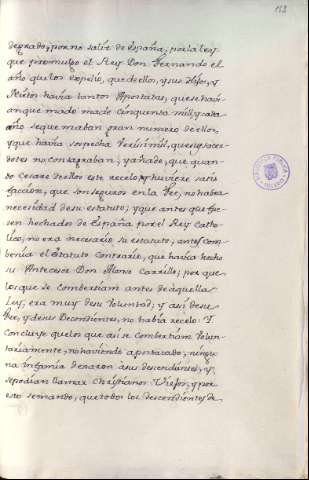 153
degrado, por no salir de España, por la ley
que promulgo el Rey Don Fernando el
año que los expelio, que de ellos, y sus Hijos, y
Nietos havia tantos Apostatas, que se havi-
an quemado mas de cinquenta mill, y cada
año se quemaban gran numero de ellos,
y que havia sospecha, que sus sacer-
dotes no consagraban; y añade, que quan-
do cesare de ellos este recelo, y huviere satis
faccion, que son seguros en la Fee, no habra
necesidad de su estatuto; y que antes que fue-
sen hechados de España por el Rey Catho-
lico, no era necesario su estatuto, antes com-
benia el Estatuto contrario, que havia hecho
su Antecesor Don Alonso Carrillo; por que
los que se combertian antes de aquella
Ley, era muy de su Voluntad; y asi de su
Fee, y de sus Decendientes, no habia recelo. Y
Concluye que los que asi se combertian Volun-
tariamente, no haviendo apostatado, ningu-
na infamia dexaron a sus descendientes, y
se podian llamar Christianos Viejos, y por
esto se mando, que todos los descendientes de
BIBLIOTECA PUBLICA
TOLEDO